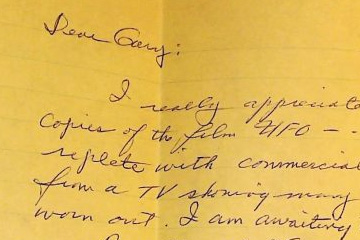 Dear Gary:
I really appreciate
copies of the film UFO -
replete with commercial
from a TV showing many
worn out. I am awaiting